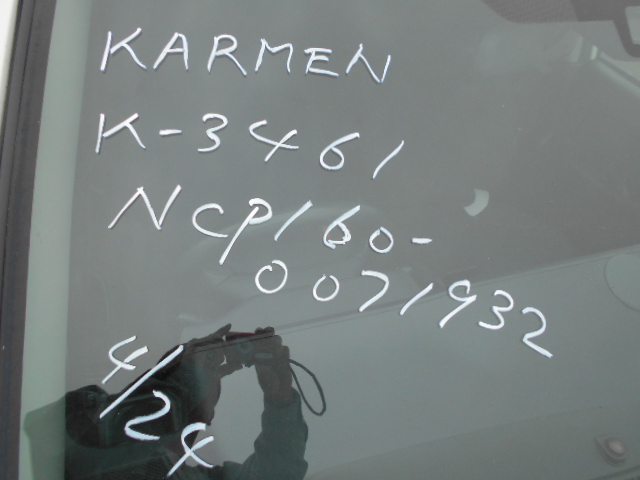 KARMEN
K-3461
NCP160-
0071932
4/24